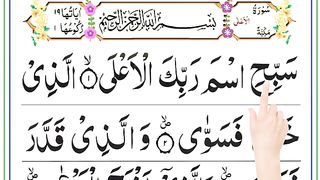 سُوْرَةُ الْاَعْلٰى مَكِّيَّةٌ بِسْمِ اللّٰهِ الرَّحْمٰنِ الرَّحِيْمِ اٰيَاتُهَا ١٩ رُكُوْعُهَا ١
سَبِّحِ اسْمَ رَبِّكَ الْاَعْلَىۙ ١ الَّذِىْ
فَسَوّٰىۙ ٢ وَ الَّذِىْ قَدَّرَ